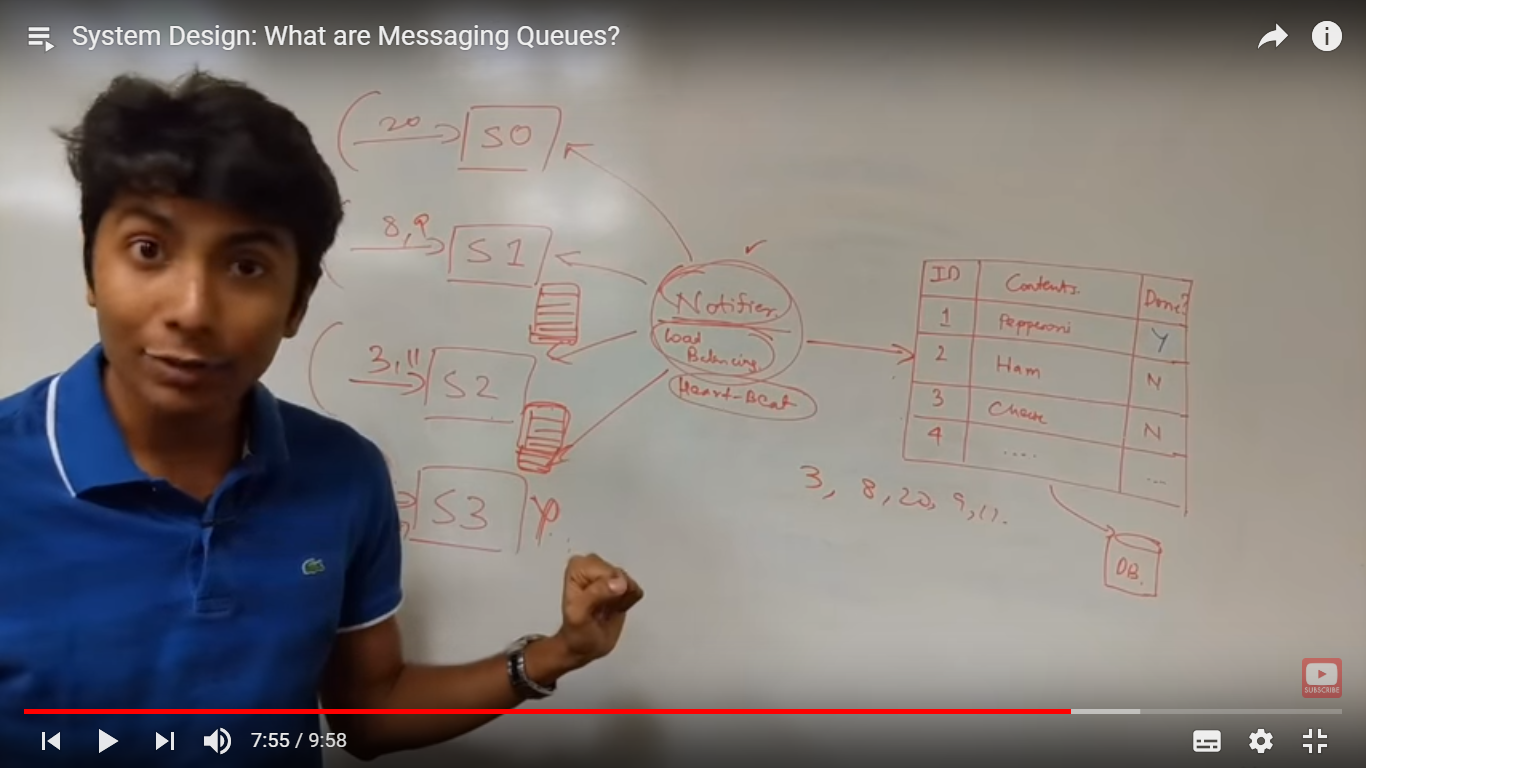 System Design: What are Messaging Queues?
20
S0
8,9
S1
3,11
S2
S3
Notifier
Load
Balancing
Heart-Beat
ID Contents Done?
1 Pepperoni Y
2 Ham N
3 Cheese N
4 .... ...
3, 8, 20, 9, 11.
DB.
SUBSCRIBE
7:55 / 9:58